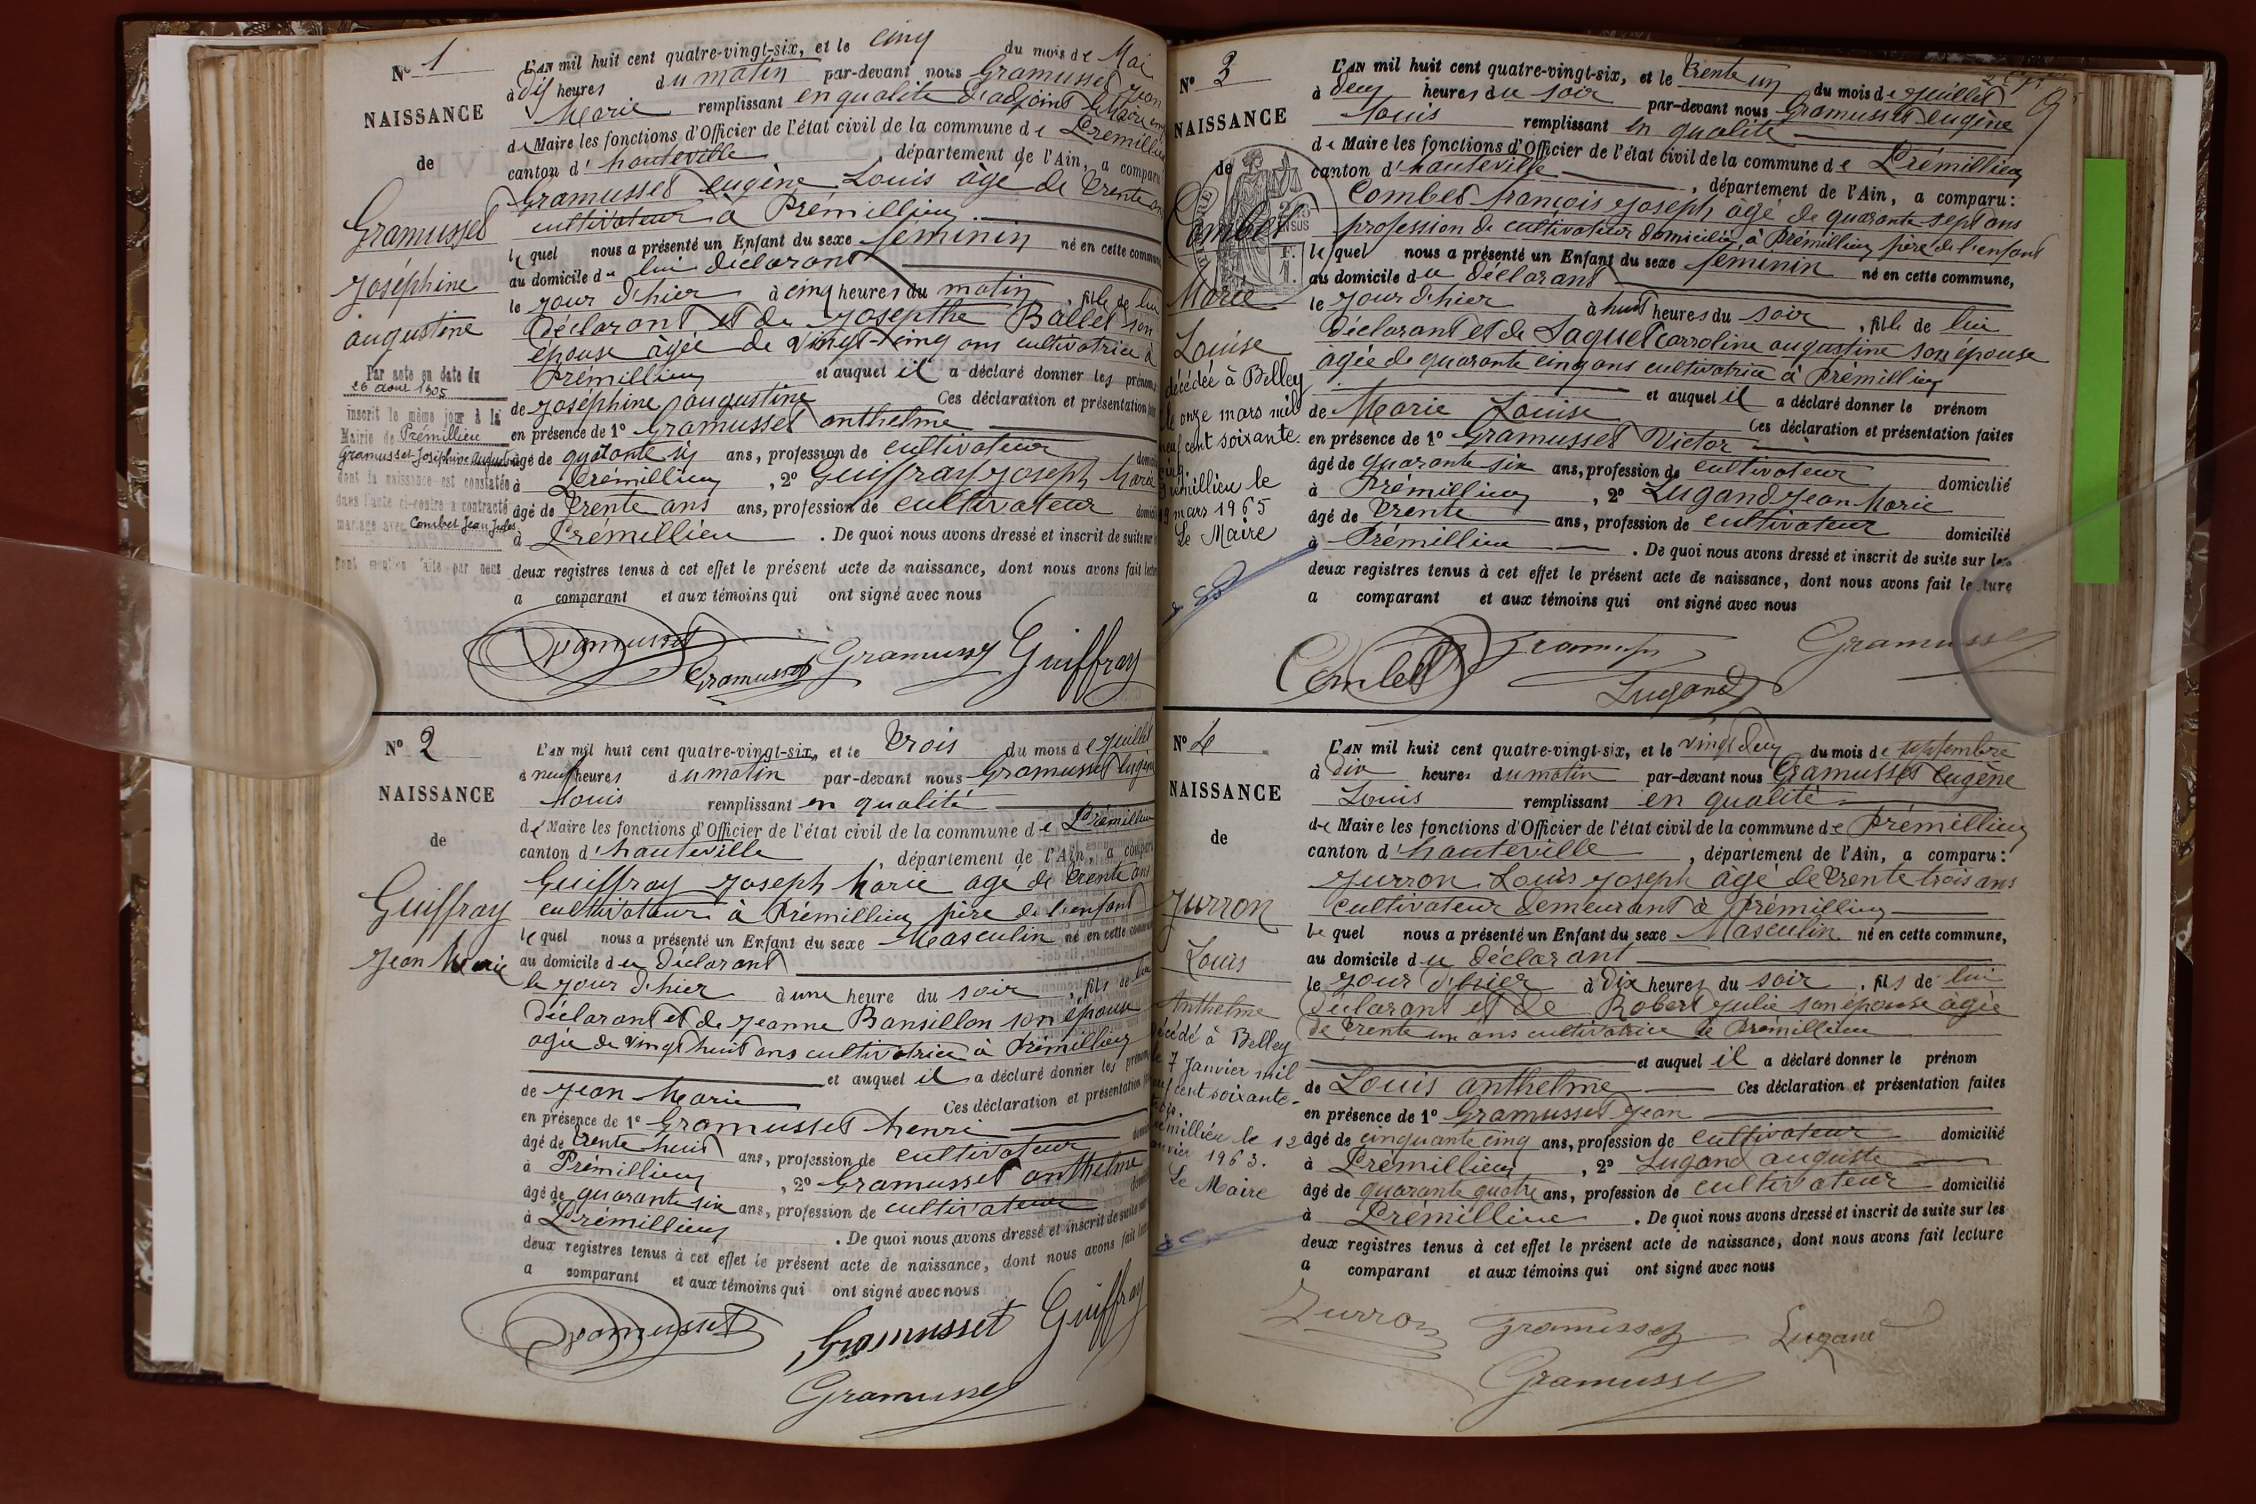 N° 1
NAISSANCE
de
Gramusset
Joséphine
augustine
Par acte en date du
26 août 1905
inscrit le même jour à la
Mairie de Prémillieu
Gramusset Joséphine Augustine
dont la naissance est constatée
dans l'acte ci-contre a contracté
mariage avec Combet Jean Jules
Dont mention faite par nous
L'AN mil huit cent quatre-vingt-six, et le cinq du mois de Mai
à dix heures du matin par-devant nous Gramusset Jean
Marie remplissant en qualité d'adjoint
de Maire les fonctions d'Officier de l'état civil de la commune de Prémillieu
canton d'hauteville, département de l'Ain, a comparu
Gramusset eugène Louis âgé de trente
cultivateur à Prémillieu
lequel nous a présenté un Enfant du sexe feminin né en cette commune
au domicile du lui déclarant
le jour d'hier à cinq heures du matin, fille de lui
déclarant et de Josepthe Ballet son
épouse âgée de vingt-cinq ans cultivatrice à
Prémillieu et auquel il a déclaré donner les prénoms
de Joséphine augustine Ces déclaration et présentation
en présence de 1° Gramusset anthelme
âgé de quarante six ans, profession de cultivateur
à Prémillieu, 2° Guiffray Joseph Marie
âgé de trente ans ans, profession de cultivateur
à Prémillieu. De quoi nous avons dressé et inscrit de suite sur
deux registres tenus à cet effet le présent acte de naissance, dont nous avons fait lecture
a comparant et aux témoins qui ont signé avec nous
Gramusset Gramusset Gramusset Guiffray
N° 2
NAISSANCE
de
Guiffray
Jean Marie
L'AN mil huit cent quatre-vingt-six, et le trois du mois de Juillet
à neuf heures du matin par-devant nous Gramusset Eugène
Louis remplissant en qualité
de Maire les fonctions d'Officier de l'état civil de la commune de Prémillieu
canton d'hauteville, département de l'Ain, a comparu
Guiffray Joseph Marie agé de trente ans
cultivateur à Prémillieu père de l'enfant
lequel nous a présenté un Enfant du sexe Masculin né en cette commune
au domicile du déclarant
le jour d'hier à une heure du soir, fils de lui
déclarant et de Jeanne Bansillon son épouse
agée de vingt huit ans cultivatrice à Prémillieu
et auquel il a déclaré donner les prénoms
de Jean Marie Ces déclaration et présentation
en présence de 1° Gramusset henri
âgé de trente huit ans, profession de cultivateur
à Prémillieu, 2° Gramusset anthelme
âgé de quarante six ans, profession de cultivateur
à Prémillieu. De quoi nous avons dressé et inscrit de suite sur
deux registres tenus à cet effet le présent acte de naissance, dont nous avons fait lecture
a comparant et aux témoins qui ont signé avec nous
Gramusset Gramusset Guiffray
Gramusset
N° 3
NAISSANCE
de
Combet
Marie
Louise
décédée à Belley
le onze mars mil
neuf cent soixante
cinq.
Prémillieu le
mars 1965
Le Maire
L'AN mil huit cent quatre-vingt-six, et le trente un du mois de Juillet
à deux heures du soir par-devant nous Gramusset eugène
Louis remplissant en qualité
de Maire les fonctions d'Officier de l'état civil de la commune de Prémillieu
canton d'hauteville, département de l'Ain, a comparu:
Combet francois Joseph âgé de quarante sept ans
profession de cultivateur domicilié à Prémillieu père de l'enfant
lequel nous a présenté un Enfant du sexe feminin né en cette commune,
au domicile du déclarant
le jour d'hier à huit heures du soir, fille de lui
déclarant et de Jaquet carroline augustine son épouse
agée de quarante cinq ans cultivatrice à Prémillieu
et auquel il a déclaré donner le prénom
de Marie Louise Ces déclaration et présentation faites
en présence de 1° Gramusset Victor
âgé de quarante six ans, profession de cultivateur domicilié
à Prémillieu, 2° Lugand Jean Marie
âgé de trente ans, profession de cultivateur domicilié
à Prémillieu. De quoi nous avons dressé et inscrit de suite sur les
deux registres tenus à cet effet le présent acte de naissance, dont nous avons fait lecture
a comparant et aux témoins qui ont signé avec nous
Combet Gramusset Gramusset
Lugand
N° 4
NAISSANCE
de
Jurron
Louis
Anthelme
décédé à Belley
le 7 Janvier mil
neuf cent soixante-
trois.
Prémillieu le 12
janvier 1963.
Le Maire
L'AN mil huit cent quatre-vingt-six, et le vingt deux du mois de septembre
à dix heures du matin par-devant nous Gramusset Eugène
Louis remplissant en qualité
de Maire les fonctions d'Officier de l'état civil de la commune de Prémillieu
canton d'hauteville, département de l'Ain, a comparu:
Jurron Louis Joseph âgé de trente trois ans
cultivateur demeurant à Prémillieu
lequel nous a présenté un Enfant du sexe Masculin né en cette commune,
au domicile du déclarant
le jour d'hier à dix heures du soir, fils de lui
déclarant et de Robert Julie son épouse agée
de trente un ans cultivatrice à Prémillieu
et auquel il a déclaré donner le prénom
de Louis anthelme Ces déclaration et présentation faites
en présence de 1° Gramusset Jean
âgé de cinquante cinq ans, profession de cultivateur domicilié
à Prémillieu, 2° Lugand auguste
âgé de quarante quatre ans, profession de cultivateur domicilié
à Prémillieu. De quoi nous avons dressé et inscrit de suite sur les
deux registres tenus à cet effet le présent acte de naissance, dont nous avons fait lecture
a comparant et aux témoins qui ont signé avec nous
Jurron Gramusset Lugand
Gramusset